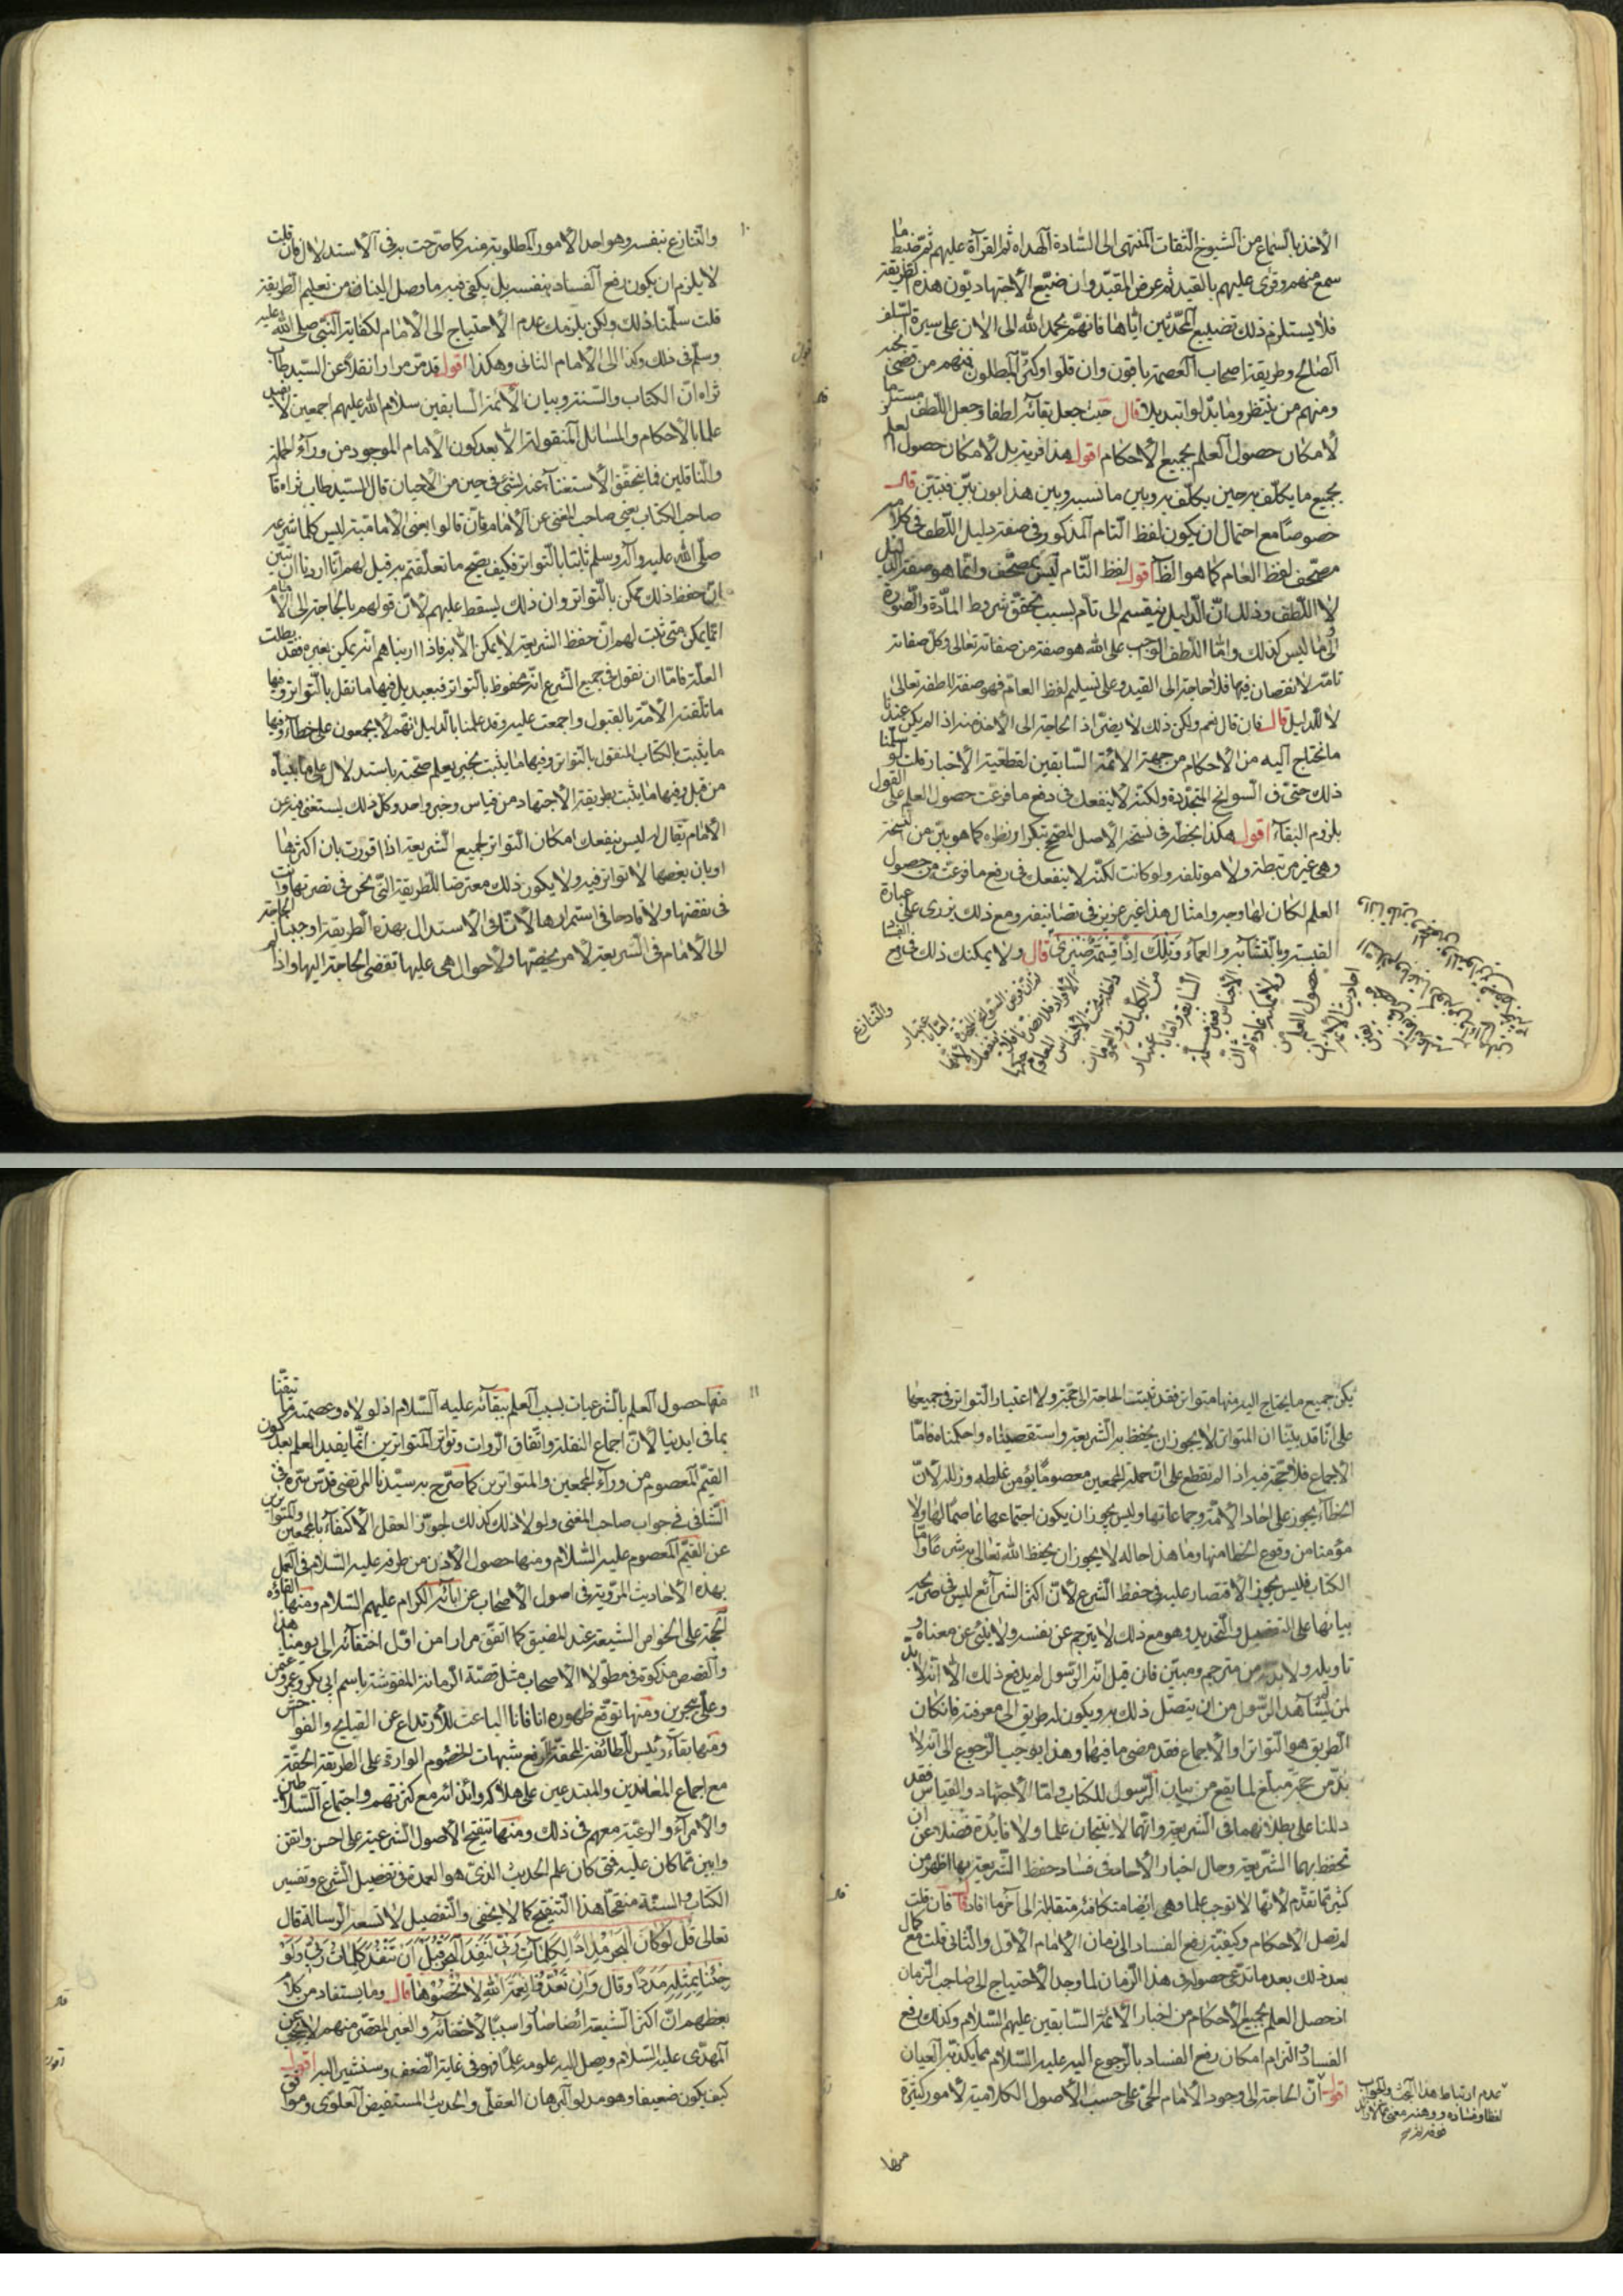 الأخذ بالسماع من الشيوخ الثقات المنتهى الى السّادة الهداه ثم القرآة عليهم ثمّ ضبط ما
سمع منهم وقرئ عليهم بالقيد ثم عرض المقيّد وان ضيّع الأجتهاديّون هذه الطريقة
فلا يستلزم ذلك تضييع المحدّثين ايّاها فانّهم بحمد الله الى الان على سيرة السّلف
الصّالح وطريقة اصحاب العصمة باقون وان قلّوا وكثر المبطلون فمنهم من قضى نحبه
ومنهم من ينتظر وما بدّلوا تبديلا قال حيث جعل بقائه لطفا وجعل اللّطف مستلزما
لأمكان حصول العلم بجميع الأحكام اقول هذا فرية بل لأمكان حصول العلم
بجميع ما يكلّف به حين يكلّف به وبين ما نسبه وبين هذا بون بيّن فتبيّن قال
خصوصًا مع احتمال ان يكون لفظ التام المذكور في صفة دليل اللّطف في كلامه
مصحّف لفظ العام كما هو الظّ اقول لفظ التّام ليس بمصحّف وانّما هو صفة الدليل
لا اللّطف وذلك انّ الدّليل ينقسم الى تام بسبب تحقّق شروط المادّة والصّورة
والى ما ليس كذلك وامّا اللّطف الواجب على الله هو صفة من صفاته تعالى وكلّ صفاته
تامّة لا نقصان فيها فلا حاجة الى القيد وعلى تسليم لفظ العام فهو صفة للطفه تعالى
لا للدليل قال فان قال نعم ولكن ذلك لا يضرّ اذ الحاجة الى الأخذ منه اذا لم يكن عندنا
ما نحتاج اليه من الأحكام من جهة الأئمة السّابقين لقطعيّة الأخبار قلت لو سلّمنا
ذلك حتى في السّوانح المتجدّدة ولكنّه لا ينفعك في دفع ما فرعت حصول العلم على القول
بلزوم البقآء اقول هكذا بخطّه في نسخة الأصل المصحّح بتكرار نظره كما هو بيّن من النسخة
وهى غير مرتبطة ولا مؤتلفة ولو كانت لكنّه لا ينفعك في رفع ما فرعت من حصول
العلم لكان لها وجه وامثال هذا غير عزيز في تصانيفه ومع ذلك يزرى على عبارة
القبسة وبالتشابه والعماء وتلك اذًا قسمة ضيزى قال ولا يمكنك ذلك في دفع الفساد
والتنازع
والتنازع بنفسه وهو احد الأمور المطلوبة منه كما صرّحت به في الأستدلال فان قلت
لا يلزم ان يكون دفع الفساد بنفسه بل يكفى فيه ما وصل الينا منه من تعليم الطريقة
قلت سلّمنا ذلك ولكن يلزمك عدم الأحتياج الى الأمام لكفاية النّبى صلى الله عليه
وسلّم في ذلك وكذا الى الأمام الثانى وهكذا اقول قد مرّ مرارا نقلا عن السّيد طاب
ثراه انّ الكتاب والسّنة وبيان الأئمة السابقين سلام الله عليهم اجمعين لا تفيد
علما بالأحكام والمسائل المنقولة الّا بعد كون الأمام الموجود من ورآء الحملة
والنّاقلين فما يتحقّق الأستغنآء عنه لشئ في حين من الأحيان قال السّيد طاب ثراه قا
صاحب الكتاب يعنى صاحب المغنى عن الأمام فان قالوا يعنى الأمامية ليس كلما شرعه
صلّى الله عليه وآله وسلم ثابتا بالتواتر فكيف يصح ما تعلّقتم به قيل لهم انّا اردنا ان نبيّن
انّ حفظ ذلك ممكن بالتواتر وان ذلك يسقط عليهم لأن قولهم بالحاجة الى الأمام
انّما يمكن متى ثبت لهم انّ حفظ الشريعة لا يمكن الّا به فاذا اريناهم انّه يمكن بغيره فقد بطلت
العلّة فامّا ان نقول في جميع الشّرع انّه محفوظ بالتواتر فبعيد بل فيها ما نقل بالتواتر وفيها
ما تلقّته الأمّة بالقبول واجمعت عليه وقد علمنا بالدليل انهم لا يجمعون على خطآء وفيها
ما يثبت بالكتاب المنقول بالتواتر وفيها ما يثبت بخبر يعلم صحّته باستدلال على ما بيّناه
من قبل وفيها ما يثبت بطريقة الأجتهاد من قياس وخبر واحد وكلّ ذلك يستغنى فيه عن
الأمام يقال له ليس ينفعك امكان التواتر لجميع الشريعة اذا اقررت بان اكثرها
او بان بعضها لا تواتر فيه ولا يكون ذلك معترضا للطريقة التى نحن في نصرتها وانت
في نقضها ولا قادحا في استمرارها لأنّا في الأستدلال بهذه الطريقة اوجبنا الحاجة
الى الأمام في الشّريعة لأمر يخصّها ولأحوال هى عليها تقتضى الحاجة اليها واذا لم
يكن جميع ما يحتاج اليه منها متواتر فقد ثبتت الحاجة الى حجّة ولا اعتبار بالتواتر في جميعها
على انّا قد بيّنا ان المتواتر لا يجوز ان يحفظ به الشّريعة واستقصيناه واحكمناه فامّا
الأجماع فلا حجّة فيه اذا لم نقطع على انّ جملة المجمعين معصومًا يؤمن غلطه وزلله لأنّ
الخطاء يجوز على احاد الأمّة وجماعاتها وليس يجوز ان يكون اجتماعها عاصمًا لها ولا
مؤمنا من وقوع الخطا منها وما هذا حاله لا يجوز ان يحفظ الله تعالى به شرعًا وامّا
الكتاب فليس يجوز الأقتصار عليه في حفظ الشّرع لأنّ اكثر الشرآئع ليس في صريحه
بيانها على التفصيل والتّحديد وهو مع ذلك لا يترجم عن نفسه ولا ينبئ عن معناه و
تاويله ولا بدّ له من مترجم ومبيّن فان قيل انّه الرّسول لم يدفع ذلك الّا انّه لا بدّ
لمن لم يشاهد الرّسول من ان يتصل ذلك به ويكون له طريق الى معرفته فان كان
الطّريق هو التّواتر او الأجماع فقد مضى ما فيهما وهذا يوجب الرّجوع الى انّه لا
بدّ من حجّة مبلّغ لما يقع من بيان الرّسول للكتاب وامّا الأجتهاد والقياس فقد
دللنا على بطلانهما في الشّريعة وانّهما لا ينتجان علما ولا فايدة فضلا عن ان
تحفظ بهما الشّريعة وحال اخبار الأحاد في فساد حفظ الشّريعة بها اظهر من
كثير ممّا تقدّم لأنّها لا توجب علما وهى ايضا متكافئة متقابلة الى آخر ما افاد قال فان قلت
لم تصل الأحكام وكيفيّة رفع الفساد الى زمان الأمام الأوّل والثّانى قلت مع كمال
بعد ذلك بعد ما تدّعى حصوله في هذا الزّمان لما وجد الأحتياج الى صاحب الزّمان
اذ حصل العلم بجميع الأحكام من اخبار الأئمة السّابقين عليهم السّلام وكذلك رفع
الفساد والتزام امكان رفع الفساد بالرّجوع اليه عليه السّلام ممّا يكذّبه العيان
اقول انّ الحاجة الى وجود الأمام الحىّ على حسب الأصول الكلاميّة لأمور كثيرة
عدم ارتباط هذا البحث والجواب
منها
منها حصول العلم بالشّرعيات بسبب العلم ببقآئه عليه السّلام اذ لولاه وعصمته ما تيقّنا
بما في ايدينا لأنّ اجماع النقلة واتّفاق الرّوات وتواتر المتواترين انّما يفيد العلم بعد كون
القيّم المعصوم من ورآء المجمعين والمتواترين كما صرّح به سيّدنا المرتضى قدّس سرّه في
الشّافى في جواب صاحب المغنى ولولا ذلك كذلك لجوّز العقل الأكتفآء بالمجمعين والمتواترين
عن القيّم المعصوم عليه السّلام ومنها حصول الأذن من طرفه عليه السّلام في العمل
بهذه الأحاديث المرويّة في اصول الأصحاب عن ابآئه الكرام عليهم السّلام ومنها القاؤه
الحجّة على الخواص الشيعة عند المضيق كما اتّفق مرارا من اوّل اختفآئه الى يومنا هذا
والقصص مذكوة في مطوّلات الأصحاب مثل قصّة الرّمانة المنقوشة باسم ابى بكر وعمر وعثمن
وعلىّ ببحرين ومنها توقّع ظهوره انا فانا الباعث للأرتداع عن القبايح والفواحش
ومنها بقآء رئيس الطّائفة المحقّة لرفع شبهات الخصوم الواردة على الطريقة الحقّة
مع اجماع المعاندين والمبتدعين على هلاكه واندائه مع كثرتهم واجتماع السّلاطين
والأمرآء والرعيّة معهم في ذلك ومنها تنقيح الأصول الشّرعية على احسن واتقن
وابين ممّا كان عليه فمتى كان علم الحديث الذى هو العمدة في تفصيل الشّرع وتفسير
الكتاب والسنّة منقحًا هذا التنقيح كما لا يخفى والتّفصيل لا تسعه الرّسالة قال
تعالى قل لو كان البحر مدادًا لكلمات ربّى لنفد البحر قبل ان تنفد كلمات ربّى ولو
جئنا بمثله مددًا وقال وان تعدّوا نعمة الله لا تحصوها قال وما يستفاد من كلام
بعظهم انّ اكثر الشّيعة ايضا صاروا سببًا لأختفآئه والغير المقصّر منهم لا يحتجب عن
المهدّى عليه السّلام ويصل اليه علومه علمًا فهو في غاية الضّعف وسنشير اليه اقول
كيف يكون ضعيفا وهو مدلول البرهان العقلى والحديث المستفيض العلوى وموافق